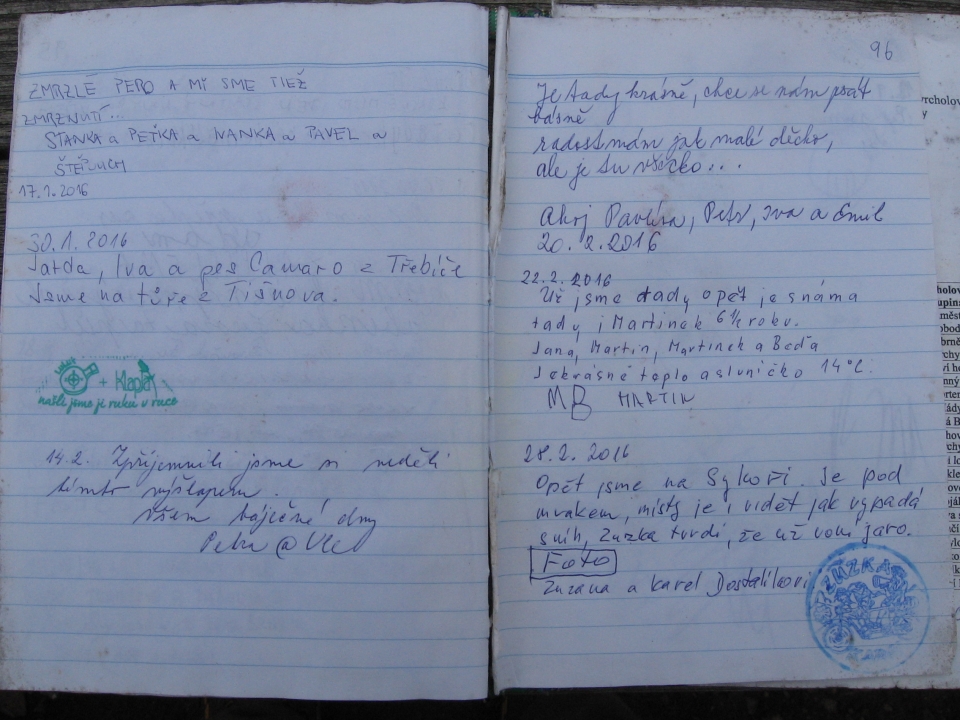 ZMRZLÉ PERO A MI SME TIEŽ
ZMRZNUTÍ...
STANKA a PEŤKA a IVANKA a PAVEL a
17.1.2016
30.1.2016
Jarda, Iva a pes Camaro z Třebíče
Jsme na túře z Tišnova.
+ Klapták
našli jsme ji ruku v ruce
14.2. Zpříjemnili jsme si neděli
tímto výšlapem.
Všem báječné dny
Petra @
96
Je tady krásně, chce se nám psát
básně
radost mám jak malé děcko,
ale je tu všecko...
Ahoj Pavlína, Petr, Iva a Emil
20.2.2016
22.2.2016
Už jsme tady opět je s náma
tady i Martinek 6 1/2 roku.
Jana, Martin, Martinek a Beďa
Je krásně teplo a sluníčko 14°C.
MB MARTIN
28.2. 2016
Opět jsme na Sykoři. Je pod
mrakem, místy je i vidět jak vypadá
sníh, Zuzka tvrdí, že už voní jaro.
Foto
Zuzana a Karel Dostalíkovi
ZUZKA